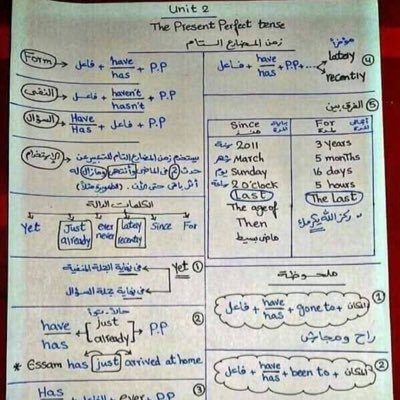 Unit 2
The Present Perfect tense
زمن المضارع التام
Form → فاعل + have/has + P.P
النفى → فاعل + haven't/hasn't + P.P
السؤال → Have/Has + فاعل + P.P
الإستخدام → يستخدم زمن المضارع التام للتعبير عن
حدث فى الماضى وأنتهى ومازال له
أثر باقى حتى الآن
الكلمات الدالة
Yet Just already ever never lately recently Since For
yet ①
فى نهاية الجملة المنفية
فى نهاية جملة السؤال
②
have/has + just/already + P.P
* Essam has just arrived at home
③
Has ever P.P
④
فاعل + have/has + P.P + ... lately
recently
⑤ الفرق بين
Since منذ For لمدة
2011 3 years
March 5 months
Sunday 16 days
2 o'clock 5 hours
Last The Last
The age of
Then
ماضى بسيط
ركز الله يكرمك
ملحوظة
① فاعل + have/has + gone to + المكان
راح ومجاش
② فاعل + have/has + been to + المكان